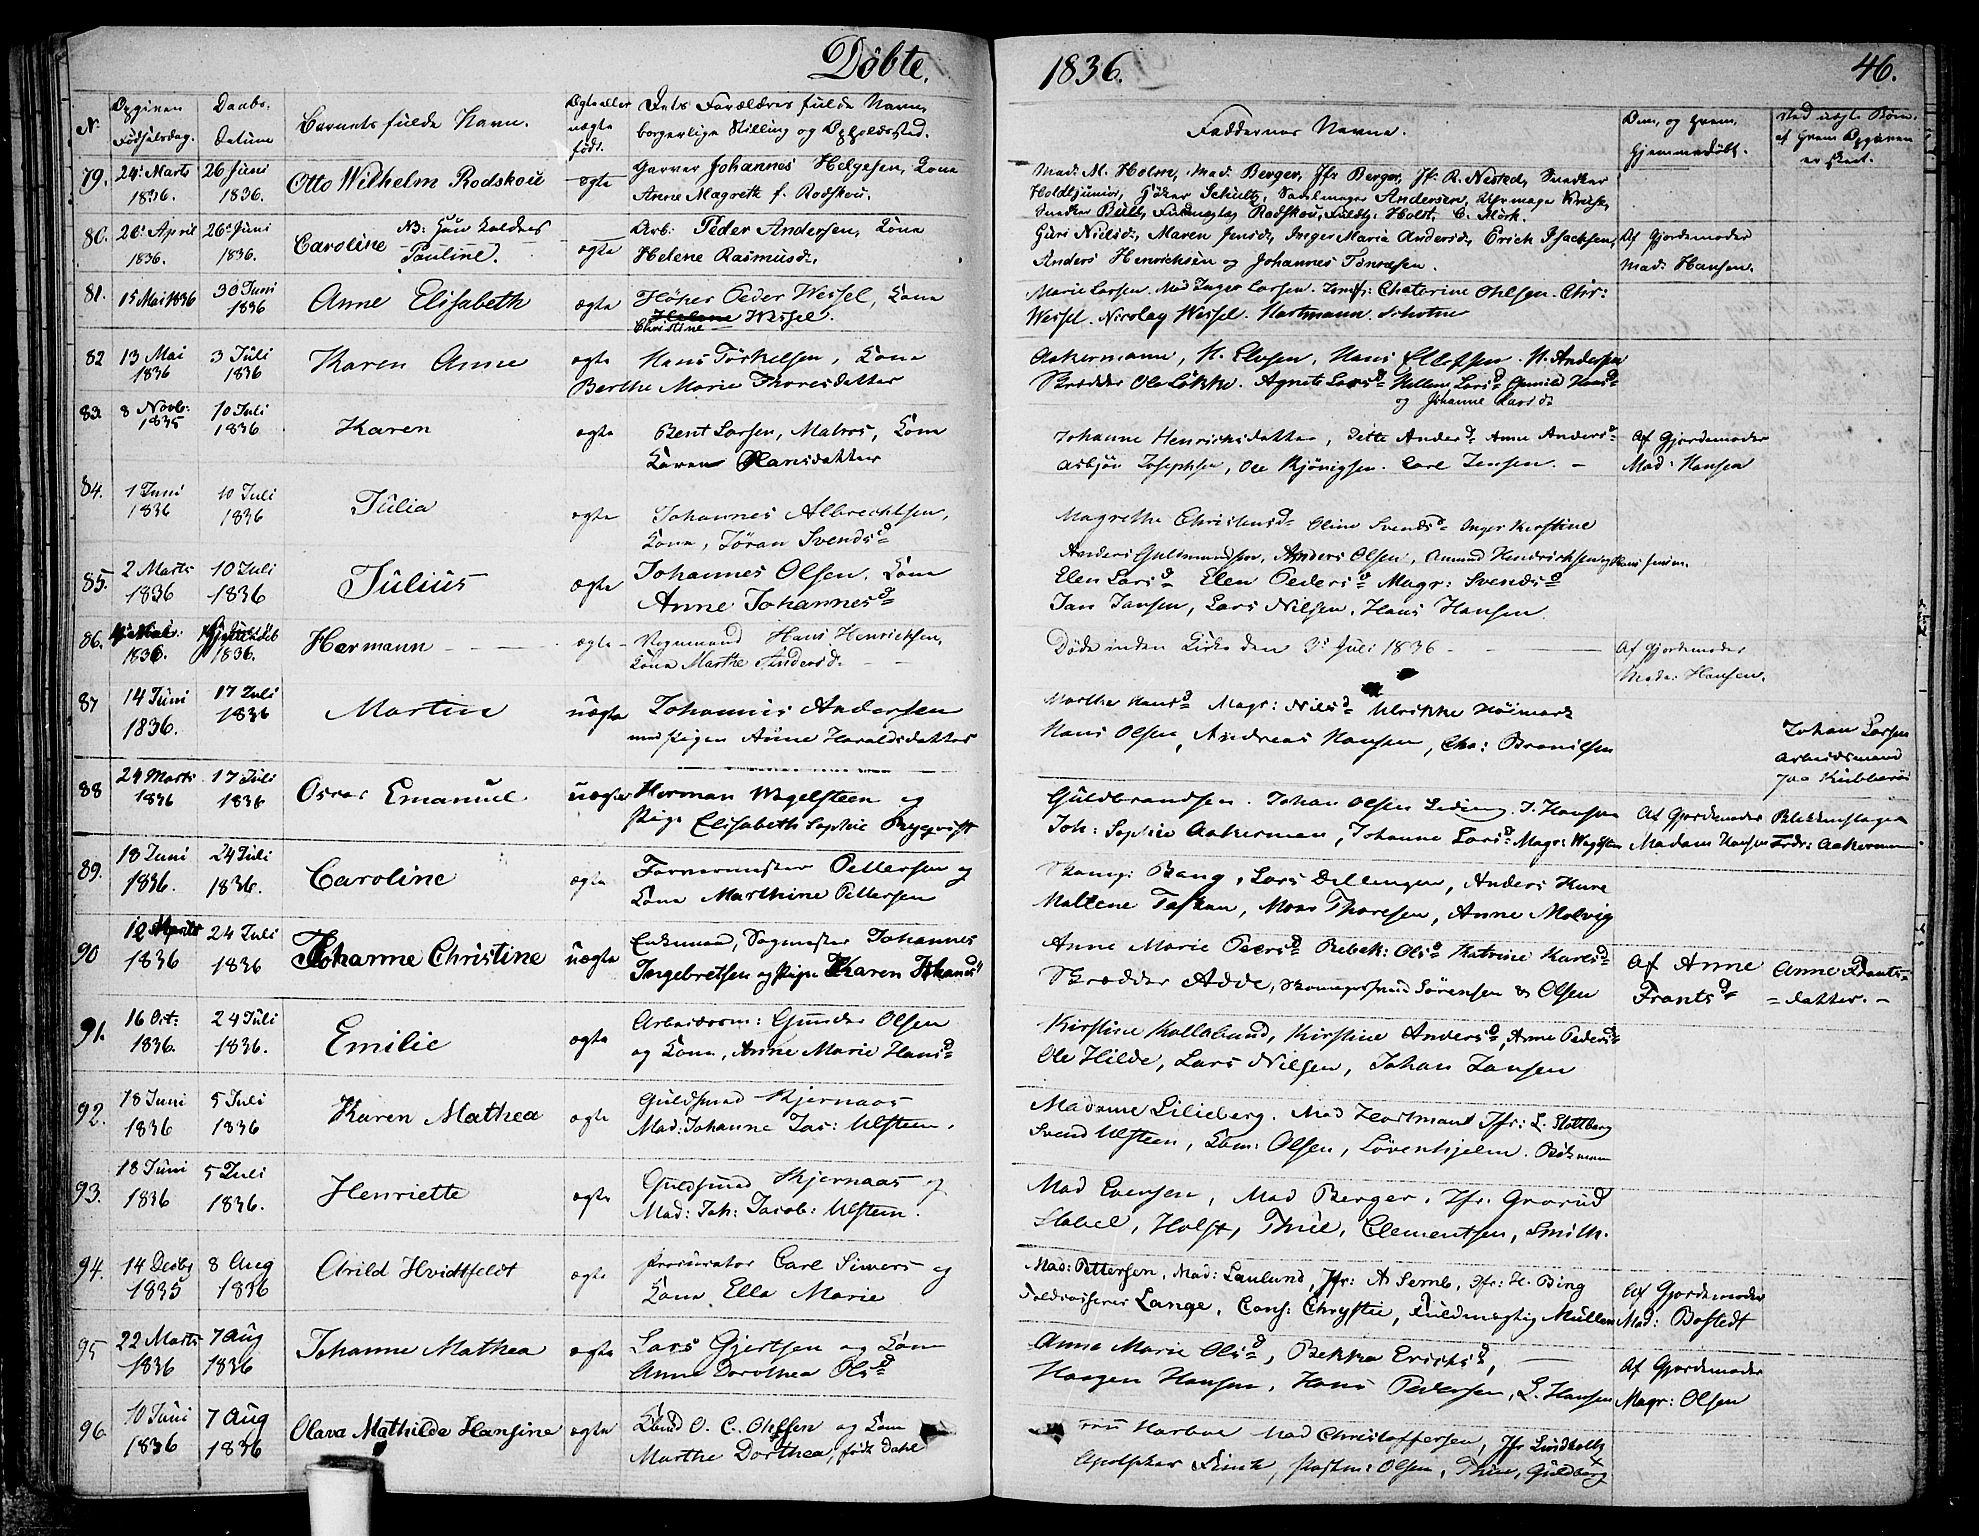 Døbte. 1836. 46.
No Opgiven Fødselsdag. Daabs-Datum Barnets fulde Navn. Ægte eller uægte født. Forældres fulde Navn, borgerlige Stilling og Opholdssted. Faddernes Navne. Hjemmedøbt.
79. 24 Marts 1836. 26 Juni 1836. Otto Wilhelm Rodskou ægte Garver Johannes Helgesen, Kone
Anne Magreth f. Rodskou.
Mad: M. Holm, Mad: Berger, Jfr Berger, Jfr: R. Nested, Snedker
Holst junior, Schultz, Andersen,
Snedker Bull, Fuldmægtig Rodskou, Holst, C. Mørk.
80. 26 April 1836. 26 Juni 1836. Caroline Pauline. NB: Hun kaldes ægte Arb: Peder Andersen, Kone
Helene Rasmusd.
Guri Nielsd, Maren Jensd, Inger Maria Andersd, Erich Isachsen, Af Gjordemoder
Anders Henrichsen og Johannes Tønnesen. Mad: Hansen.
81. 15 Mai 1836 30 Juni 1836 Anne Elisabeth ægte Høker Peder Wessel, Kone
Helene Wessel.
Christine
Marie Larsen. Mad Inger Larsen. Chatarine Ohlsen. Chr:
Wessel. Nicolay Wessel. Hartmann.
82 13 Mai 1836 3 Juli 1836 Karen Anne ægte Hans Torkelsen, Kone
Berthe Marie Thoresdatter
Aakermann, Hans Ellefsen. N. Andersen
Skrædder Ole Løkke. Agnete Larsd Hellene Larsd Gunild Hansd
og Johanne Larsd
83. 8 Novbr: 1835 10 Juli 1836 Karen ægte Bent Larsen, Matros, Kone
Karen Hansdatter
Johanne Henrichsdatter, Ditte Andersd Anne Andersd Af Gjordemoder
Asbjørn Josephsen, Ole Carl Jensen. Mad: Hansen
84. 1 Juni 1836 10 Juli 1836 Julia ægte Johannes Albrechtsen,
Kone, Jøran Svendsd
Magrethe Christensd Oline Svendsd Inger Kirstine
Anders Guldmundsen, Anders Olsen, Amund Hendrichsen
85. 2 Marts 1836 10 Juli 1836 Julius ægte Johannes Olsen. Kone
Anne Johannesd
Elen Larsd Elen Pedersd Magr: Svendsd
Jan Jansen, Lars Nilsen. Hans Hansen.
86. 1836. 1836. Hermann ægte Vognmand Hans Henrichsen,
Kone Marthe Andersd.
Døde inden Kirke den 3 Juli 1836 Af Gjordemoder
Mad: Hansen.
87 14 Juni 1836. 17 Juli 1836 Martin uægte Johannis Andersen
med Pigen Anne Haraldsdatter
Marthe Hansd Magr: Nilsd Ulrikke
Hans Olsen, Andreas Hansen, Chr:
Johan Larsen
Arbeidsmand
paa
88 24 Marts 1836 17 Juli 1836 Oscar Emanuel uægte Herman Wegelsteen og
Pige Elisabeth Sophie
Guldbrandsen. Johan Olsen J. Hansen Af Gjordemoder
Joh: Sophie Aakerman, Johanne Larsd Magr: Madam Hansen Fredr: Aakermann
89. 18 Juni 1836. 24 Juli 1836. Caroline ægte Pettersen og
Kone Marthine Pettersen
Bang, Lars Dellingen, Anders
Maltene Moses Thoresen, Anne Molvig
90 12 April 1836 24 Juli 1836 Johanne Christine uægte Enkemand, Sagmester Johannes
Ingebretsen og Pige Karen Johansd
Anne Marie Peersd Rebek: Olsd Katrine Karlsd Af Anne Anne Frants-
Skrædder Adde, Sørensen & Olsen Frantsd datter.
91. 16 Oct: 1836. 24 Juli 1836. Emilie ægte Arbeidsm: Gunder Olsen
og Kone, Anne Marie Hansd
Kirstine Kollesund, Kirstine Andersd, Anne Pedersd
Ole Hilde, Lars Nilsen, Johan Jansen
92. 18 Juni 1836 5 Juli 1836 Karen Mathea ægte Guldsmed Kjernaas
Mad: Johanne Jac: Ulsteen.
Madame Lilieberg. Mad Hartmann Jfr: L. Stoltberg
Svend Ulsteen, Kam: Olsen, Løvenhjelm.
93. 18 Juni 1836 5 Juli 1836. Henriette ægte Guldsmed Kjernaas og
Mad: Joh: Jacob: Ulsteen.
Mad Evensen, Mad Berger, Jfr: Grorud
Stabel, Holst, Thue, Clementsen, Smith.
94. 14 Decbr 1835 8 Aug 1836 Arild Hvidtfeldt ægte Procurator Carl Simers og
Kone Ella Marie
Mad: Pettersen, Mad: Laulund, Jfr: A. Semb, Jfr: H. Bing Af Gjordemoder
Toldcasserer Lange, Cons: Chrystie, Fuldmægtig Müller Mad: Bostedt
95 22 Marts 1836 7 Aug 1836 Johanne Mathea ægte Lars Gjertsen og Kone
Anne Dorothea Olsd
Anne Marie Olsd, Bekka Ericksd, Af Gjordemoder
Haagen Hansen, Hans Pedersen, L. Hansen Magr: Olsen
96. 10 Juni 1836 7 Aug 1836 Olava Mathilde Hansine ægte O. C. Olsen og Kone
Marthe Dorthea, født Dahl
Harboe Mad Christoffersen, Jfr Lindholt
Apotheker Finck, Olsen, Thue, Guldberg